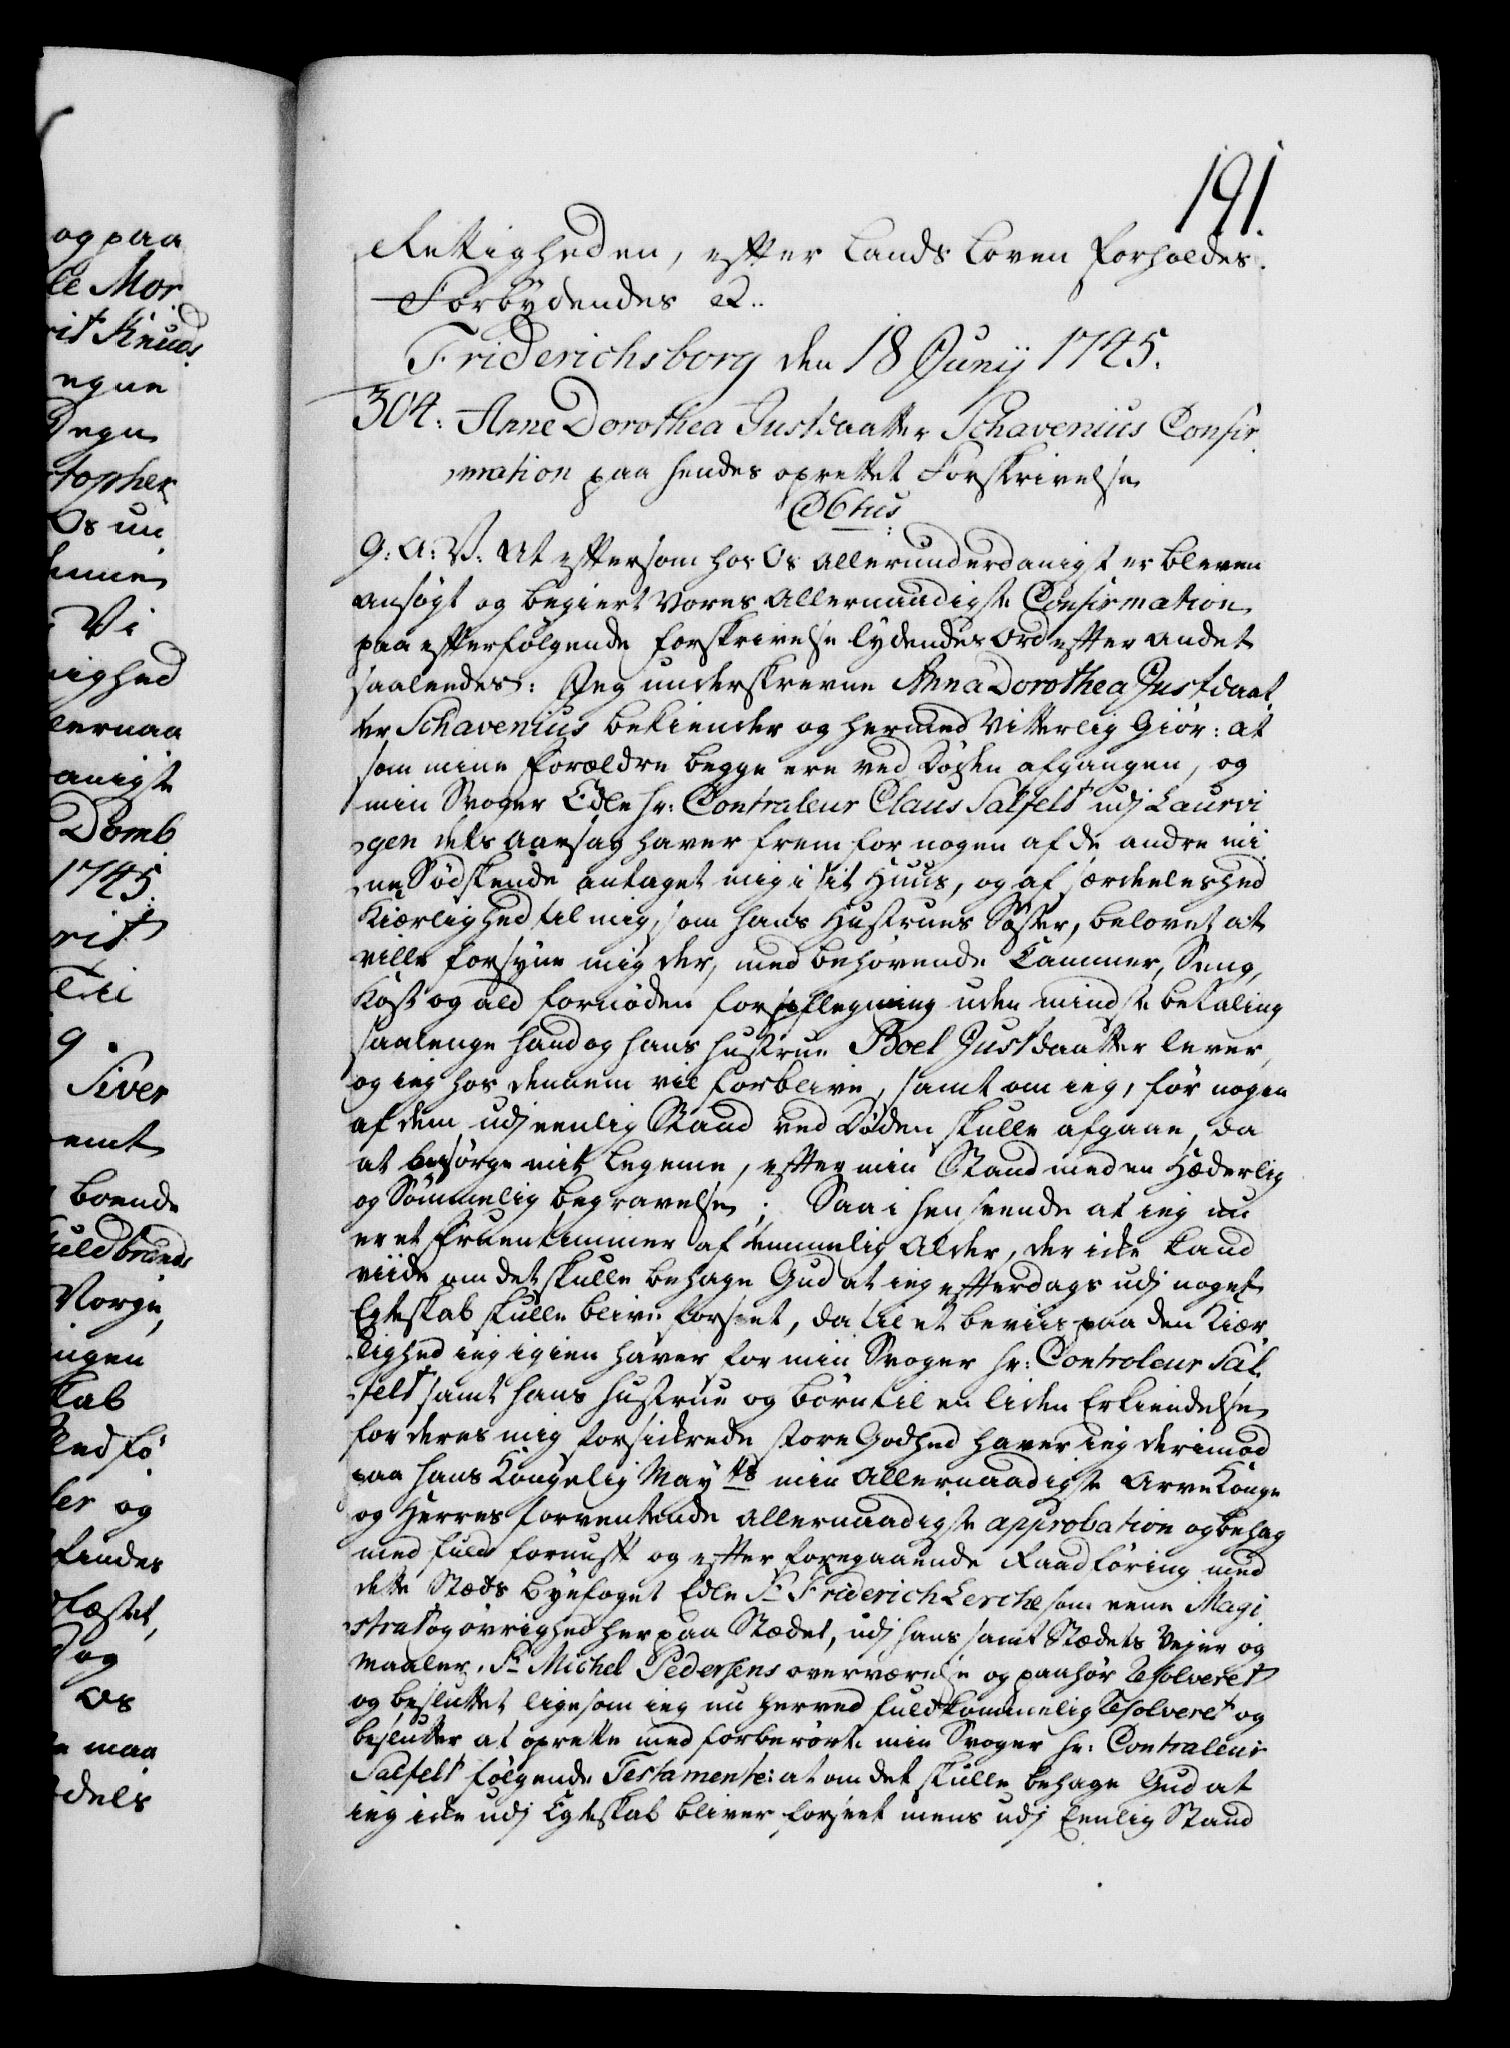 191.
Rettigheden, efter Lands Loven forholdes.
Forbydendes &..
Friderichsborg den 18 Junij 1745.
304. Anne Dorothea Justdaatter Schavenius Confir
mation paa hendes oprettet Forskrivelse
G: A: V: At eftersom hos Os allerunderdanigst er bleven
ansøgt og begiert Vores allernaadigste Confirmation
paa efterfølgende forskrivelse lydendes Ord efter andet
saalendes: Jeg underskrevne Anna Dorothea Justdaat
ter Schavenius bekiender og hermed vitterlig Giør: at
som mine forældre begge ere ved Døden afgangen, og
min Svoger Edle Hr: Contraleur Claus Salfelt udj Laurvi
gen dets aarsag haver frem for nogen af de andre mi
ne Sødskende antaget mig i sit Huus, og af særdeleshed
Kiærlighed til mig, som hans Hustrues Søster, belovet at
ville forsyne mig der, med behøvende Cammer, Seng,
Kost og ald fornøden forpflegning uden mindste betaling
saalenge hand og hans hustrue Boel Justdaatter lever
og ieg hos dennem vil forblive, samt om ieg, før nogen
af dem udj eenlig Stand ved Døden skulle afgaae, da
at besørge mit legeme, efter min Stand med en Hæderlig
og Sømmelig begravelse; Saa i henseende at ieg nu
er et fruentimmer af temmelig Alder, der icke kand
viide om det skulle behage Gud at ieg efterdags udj noget
Egteskab skulle blive forseet, da til et beviis paa den Kiær
lighed ieg igien haver for min Svoger Hr: Controleur Sal
felt samt hans hustrue og børn til en liden Erkiendelse
for deres mig forsickrede store Godhed haver ieg derimod
paa hans Kongelig May.ts min Allernaadigste Arve Konge
og Herres forventende allernaadigste approbation og behag
med fuld fornuft og efter foregaaende Raadføring med
dette Stæds byefoget Edle Sr Friderich Lerche som eene Magi
strat og øvrighed her paa Stædet, udj hans samt Stædets Vejer og
Maaler, Sr Michel Pedersens overværelse og paahør Resolveret
og besluttet ligesom ieg nu herved fuldkommelig Resolveret og
beslutter at oprette med forberørte min Svoger Hr: Contraleur
Salfelt følgende Testamente: at om det skulle behage Gud at
ieg icke udj Egteskab bliver forseet mens udj Eenlig Stand